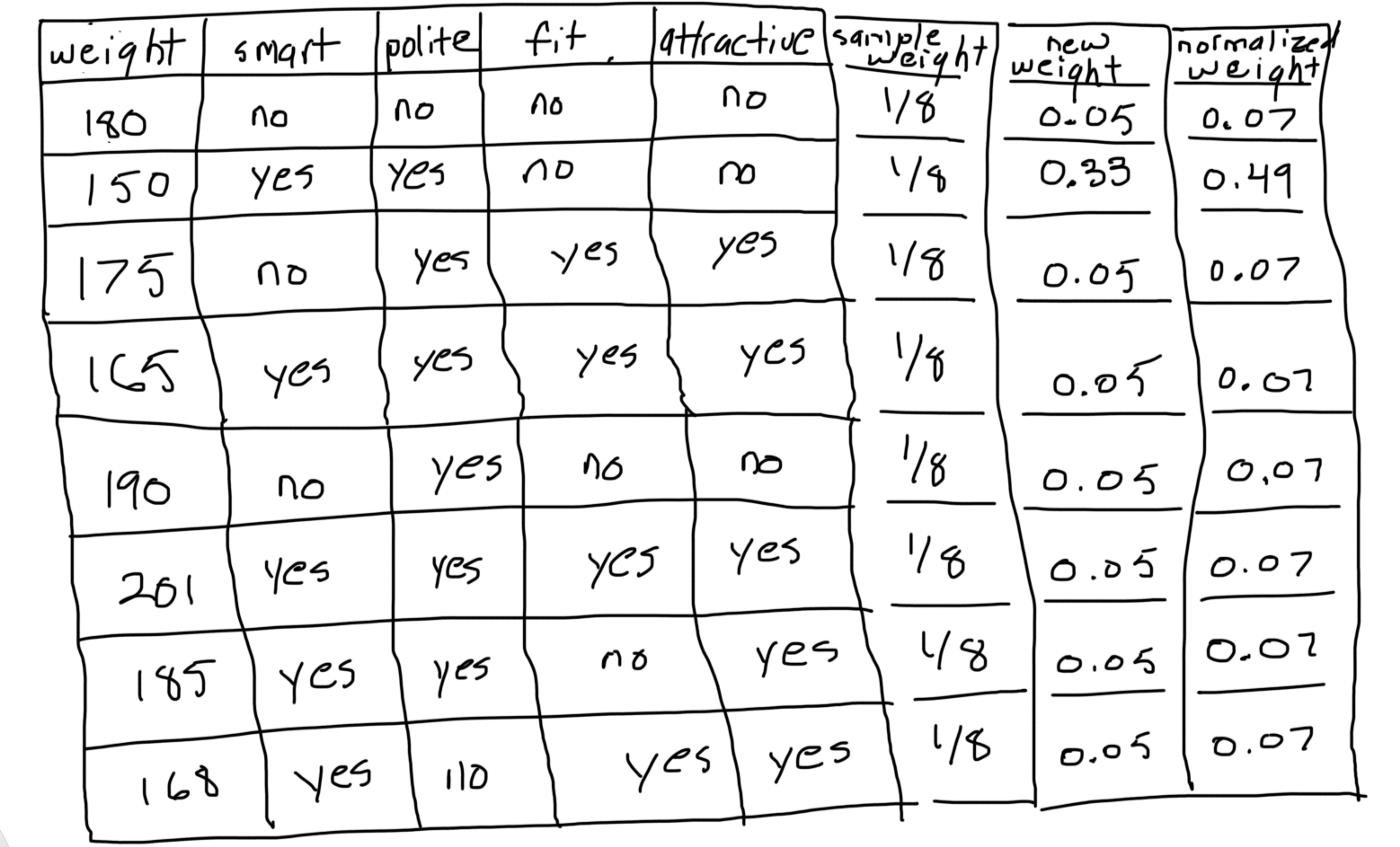 weight smart polite fit attractive sample weight new weight normalized weight
180 no no no no 1/8 0.05 0.07
150 yes yes no no 1/8 0.33 0.49
175 no yes yes yes 1/8 0.05 0.07
165 yes yes yes yes 1/8 0.05 0.07
190 no yes no no 1/8 0.05 0.07
201 yes yes yes yes 1/8 0.05 0.07
185 yes yes no yes 1/8 0.05 0.07
168 yes no yes yes 1/8 0.05 0.07